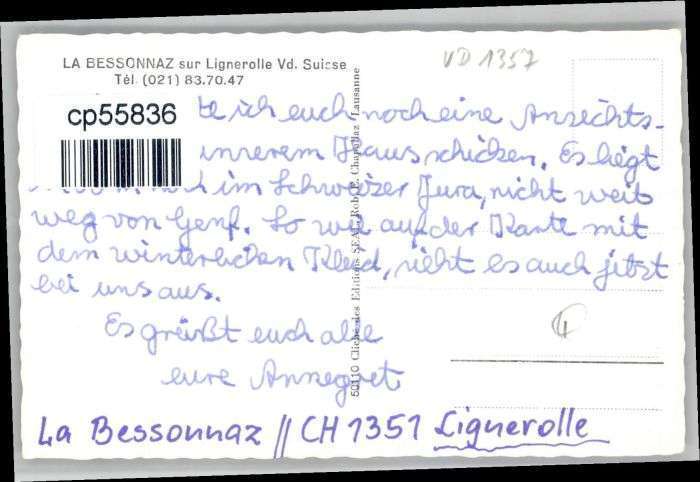 LA BESSONNAZ sur Lignerolle Vd. Suisse
Tél. (021) 83.70.47
VD 1357
cp55836
te ich euch noch eine Ansichts-
unserem Haus schicken. Es liegt
im Schweizer Jura, nicht weit
weg von Genf. So wie auf der Karte mit
dem winterlichen Kleid, sieht es auch jetzt
bei uns aus.
Es grüßt euch alle
eure Annegret
La Bessonnaz // CH 1351 Lignerolle
50110 Cliché des Editions SEAL Rob. E. Chapallaz Lausanne
4